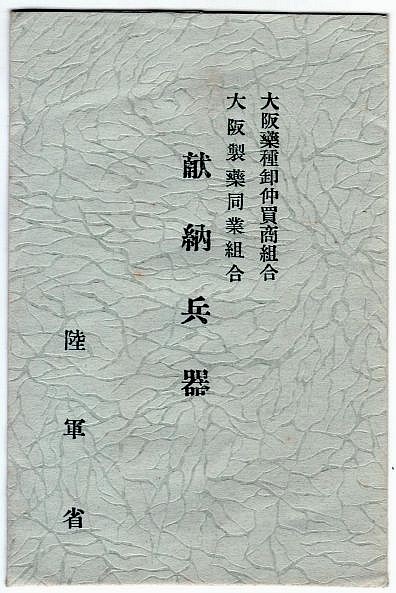 大阪藥種卸仲買商組合
大阪製藥同業組合
献納兵器
陸軍省